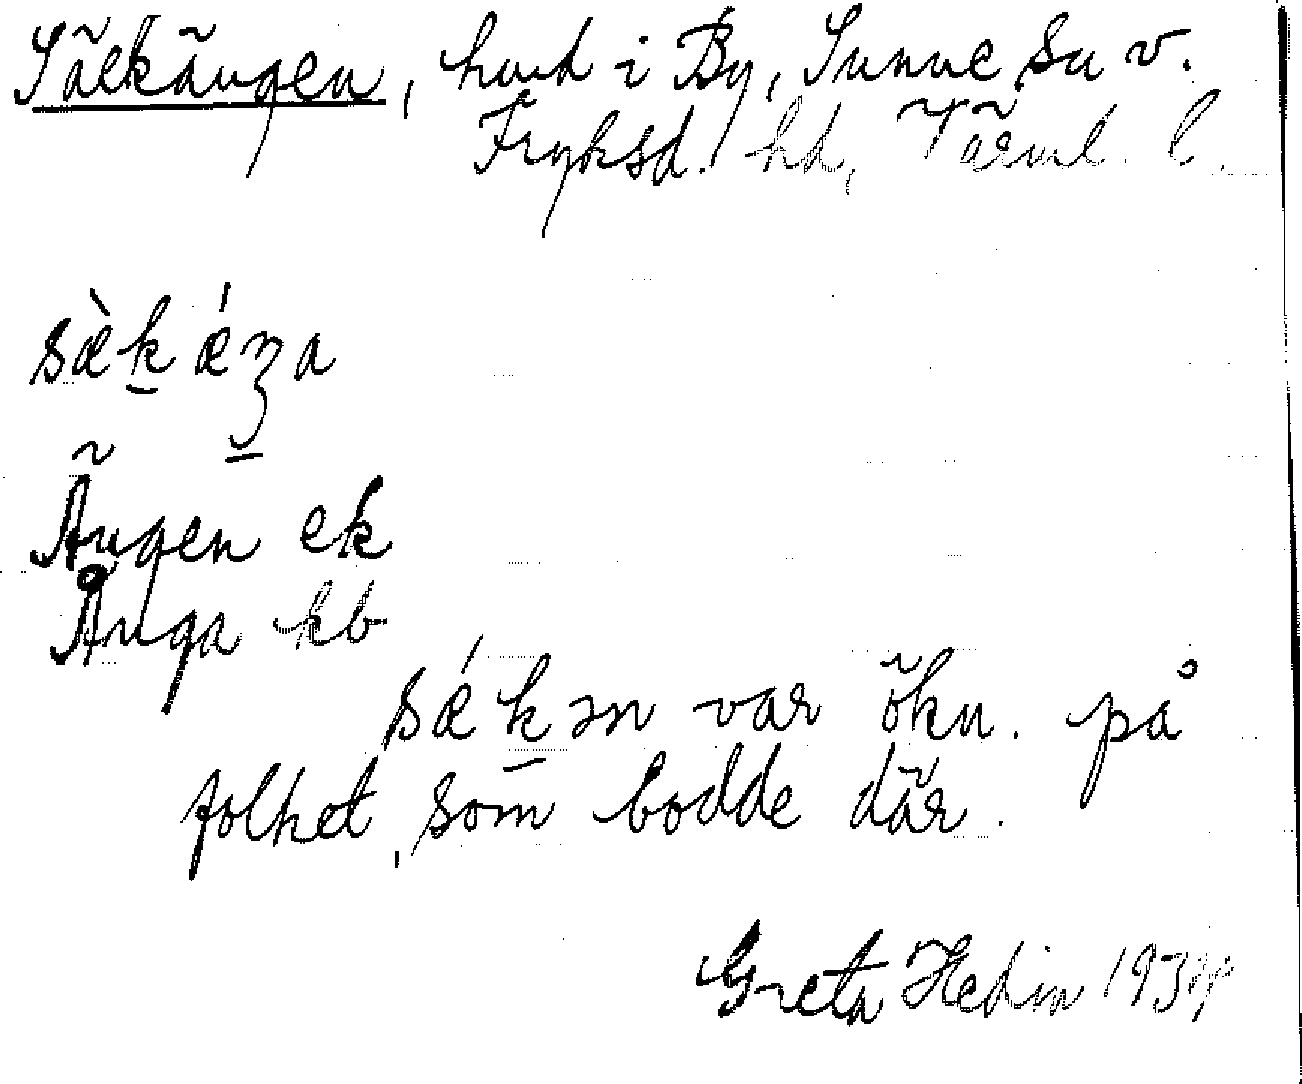 Säckängen, hmd i By, Sunne sn v.
Fryksd. hd, Värml. l.
sæ̀k ǽŋa
Ängen ek
Ånga kb
sǽkən var ökn. på
folket, som bodde där.
Greta Hedin 1934